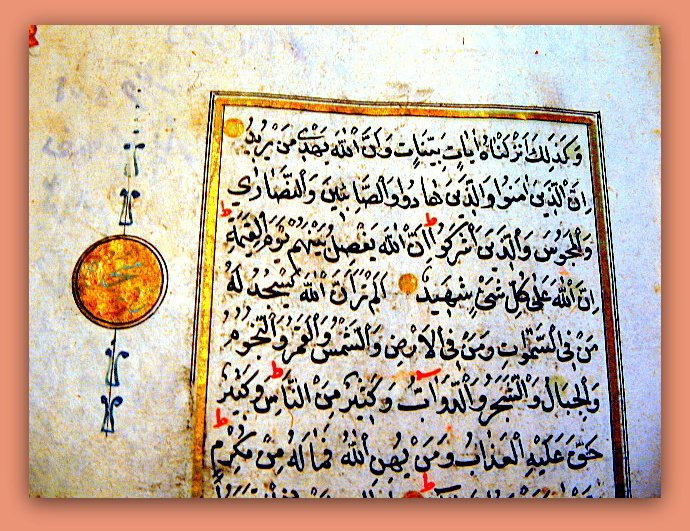 وَكَذَلِكَ اَنْزَلْنَاهُ اٰيَاتٍ بَيِّنَاتٍ وَاَنَّ اللّٰهَ يَهْدٖى مَنْ يُرٖيدُ
اِنَّ الَّذٖينَ اٰمَنُوا وَالَّذٖينَ هَادُوا وَالصَّابِئٖينَ وَالنَّصَارٰى
وَالْمَجُوسَ وَالَّذٖينَ اَشْرَكُوا ط اِنَّ اللّٰهَ يَفْصِلُ بَيْنَهُمْ يَوْمَ الْقِيٰمَةِ ط
اِنَّ اللّٰهَ عَلٰى كُلِّ شَىْءٍ شَهٖيدٌ اَلَمْ تَرَ اَنَّ اللّٰهَ يَسْجُدُ لَهُ
مَنْ فِى السَّمٰوَاتِ وَمَنْ فِى الْاَرْضِ وَالشَّمْسُ وَالْقَمَرُ وَالنُّجُومُ
وَالْجِبَالُ وَالشَّجَرُ وَالدَّوَابُّ وَكَثٖيرٌ مِنَ النَّاسِ ط وَكَثٖيرٌ
حَقَّ عَلَيْهِ الْعَذَابُ ط وَمَنْ يُهِنِ اللّٰهُ فَمَا لَهُ مِنْ مُكْرِمٍ